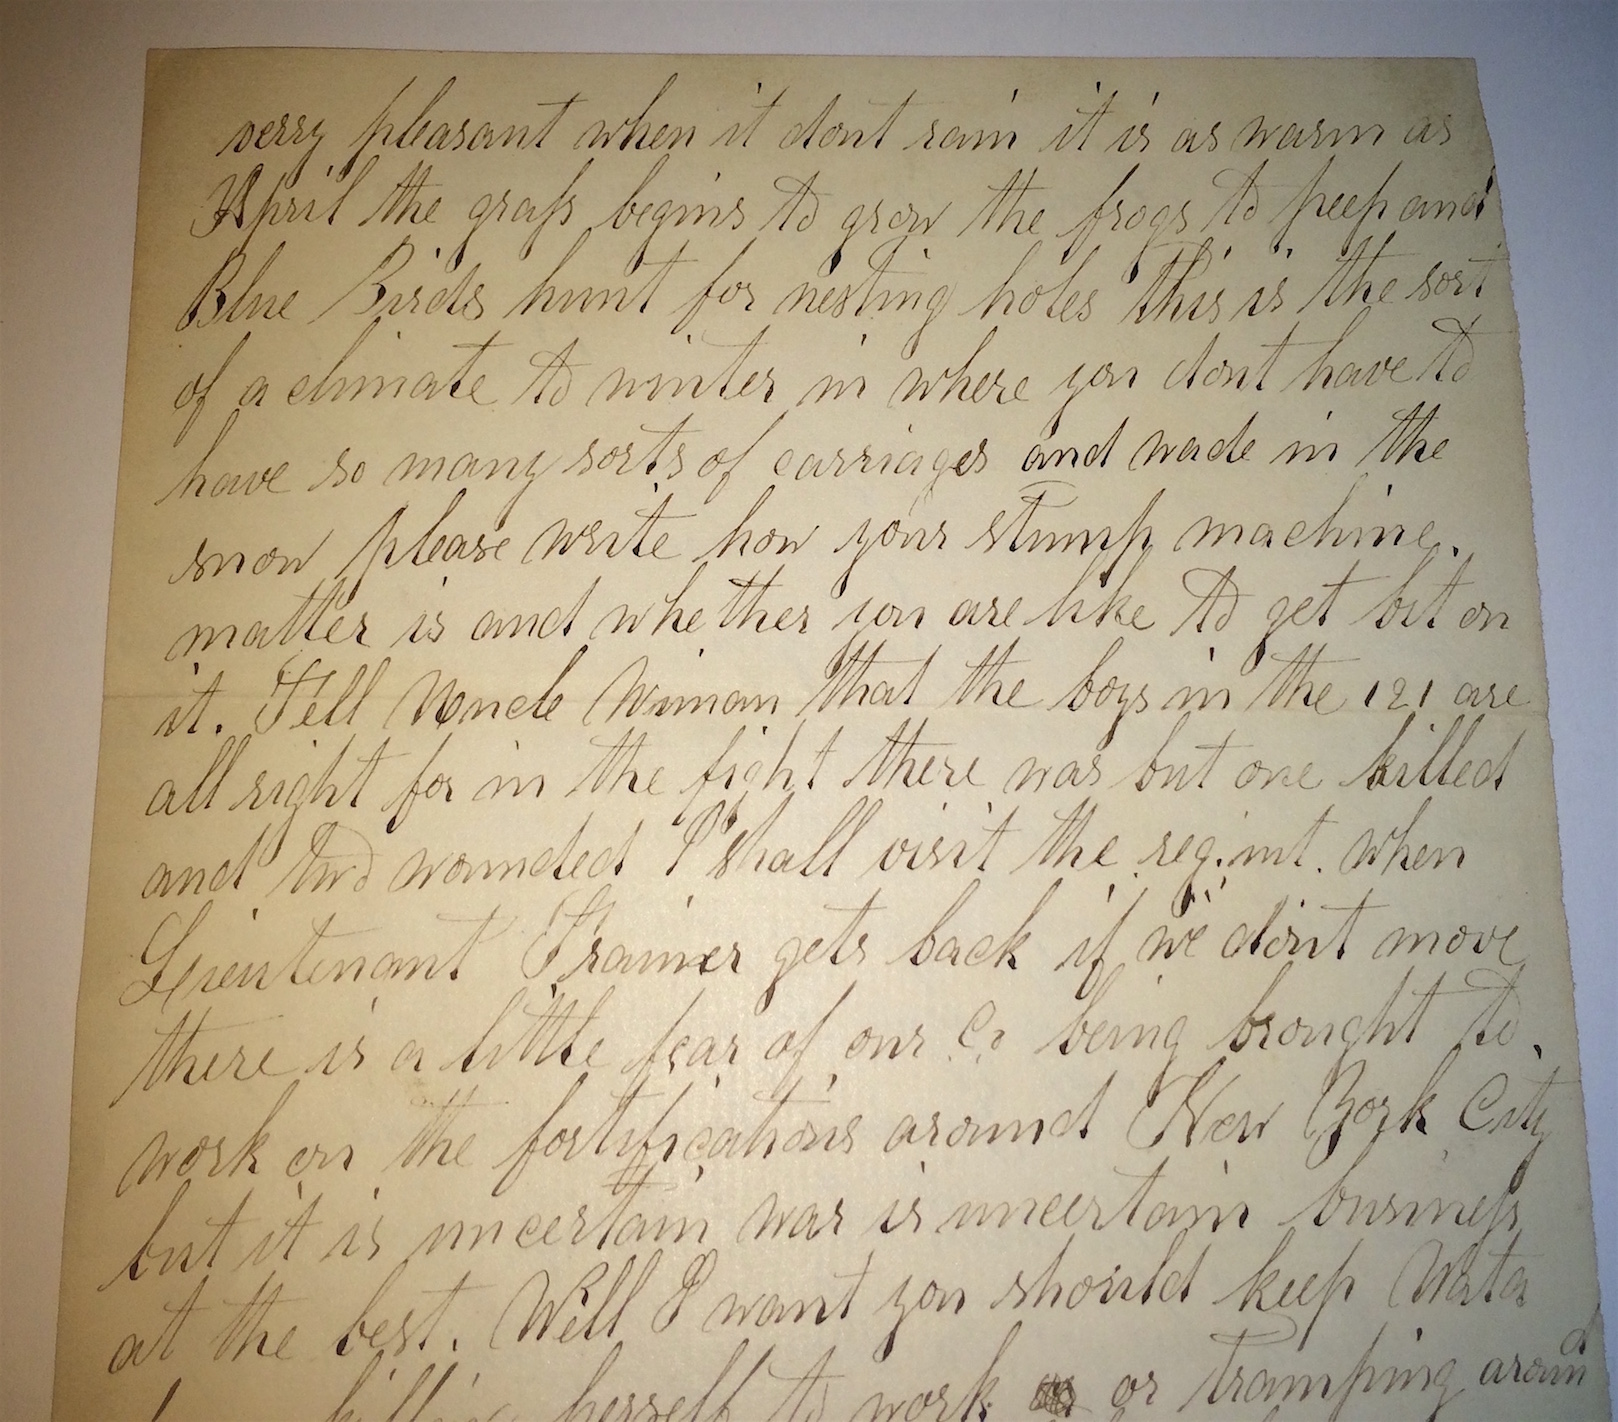 verry pleasant when it dont rain it is as warm as
April the grass begins to grow the frogs to peep and
Blue Birds hunt for nesting holes this is the sort
of a climate to winter in where you dont have to
have so many sorts of carriages and wade in the
snow please write how your stump machine.
matter is and whether you are like to get bit on
it. Tell Uncle Wiman that the boys in the 121 are
all right for in the fight there was but one killed
and two wounded I shall visit the regimt. when
Lieutenant Trainer gets back if we dont move
there is a little fear of our Co being brought to
work on the fortifications around New York City
but it is uncertain war is uncertain business
at the best. Well I want you should keep
killing herself to work or tramping around